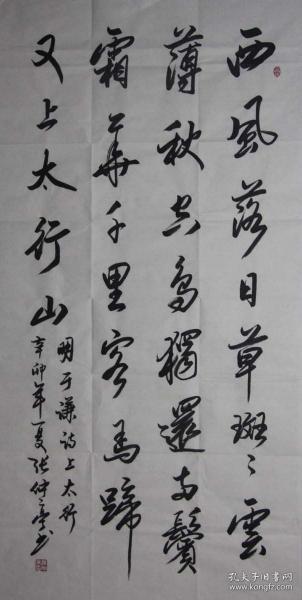 西風落日草斑々雲
薄秋空鳥獨還両鬢
霜華千里客馬蹄
又上太行山
明于謙詩上太行
辛卯年夏張仲亭书
孔夫子旧书网